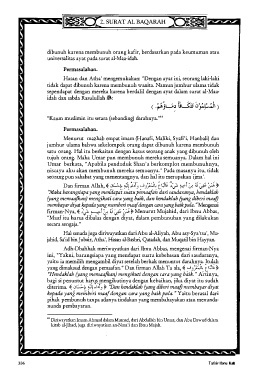 2. SURAT AL BAQARAH
dibunuh karena membunuh orang kafir, berdasarkan pada keumuman atau
universalitas ayat pada surat al-Maa-idah.
Permasalahan.
Hasan dan Atha' mengemukakan: "Dengan ayat ini, seorang laki-laki
tidak dapat dibunuh karena membunuh wanita. Namun jumhur ulama tidak
sependapat dengan mereka karena berdalil dengan ayat dalam surat al-Maa-
idah dan sabda Rasulullah ﷺ:
( الْمُسْلِمُوْنَ تَتَكَافَأُ دِمَاؤُهُمْ )
"Kaum muslimin itu setara (sebanding) darahnya."
Permasalahan.
Menurut mazhab empat imam (Hanafi, Maliki, Syafi'i, Hanbali) dan
jumhur ulama bahwa sekelompok orang dapat dibunuh karena membunuh
satu orang. Hal itu berkaitan dengan kasus seorang anak yang dibunuh oleh
tujuh orang. Maka Umar pun membunuh mereka semuanya. Dalam hal ini
Umar berkata, "Apabila penduduk Shan'a berkomplot membunuhnya,
niscaya aku akan membunuh mereka semuanya." Pada masanya itu, tidak
seorang pun sahabat yang menentangnya, dan hal itu merupakan ijma'.
Dan firman Allah, ﴿ فَمَنْ عُفِيَ لَهُ مِنْ أَخِيهِ شَيْءٌ فَاتِّبَاعٌ بِالْمَعْرُوفِ وَأَدَاءٌ إِلَيْهِ بِإِحْسَانٍ ﴾
"Maka barangsiapa yang mendapat suatu pemaafan dari saudaranya, hendaklah
(yang memaafkan) mengikuti cara yang baik, dan hendaklah (yang diberi maaf)
membayar diyat kepada yang memberi maaf dengan cara yang baik pula." Mengenai
firman-Nya, ﴿ فَمَنْ عُفِيَ لَهُ مِنْ أَخِيهِ شَيْءٌ ﴾ Menurut Mujahid, dari Ibnu Abbas,
"Maaf itu harus dibalas dengan diyat, dalam pembunuhan yang dilakukan
secara sengaja."
Hal senada juga diriwayatkan dari Abu al-Aliyah, Abu asy-Sya'tsa', Mu-
jahid, Sa'id bin Jubair, Atha', Hasan al-Bashri, Qatadah, dan Muqatil bin Hayyan.
Adh-Dhahhak meriwayatkan dari Ibnu Abbas, mengenai firman-Nya
ini, "Yakni, barangsiapa yang mendapat suatu kebebasan dari saudaranya,
yaitu ia memilih mengambil diyat setelah berhak menuntut darahnya. Itulah
yang dimaksud dengan pemaafan." Dan firman Allah Ta'ala, ﴿ فَاتِّبَاعٌ بِالْمَعْرُوفِ ﴾
"Hendaklah (yang memaafkan) mengikuti dengan cara yang baik." Artinya,
bagi si penuntut harus mengikutinya dengan kebaikan, jika diyat itu sudah
diterima. ﴿ وَأَدَاءٌ إِلَيْهِ بِإِحْسَانٍ ﴾ "Dan hendaklah (yang diberi maaf) membayar diyat
kepada yang memberi maaf dengan cara yang baik pula." Yaitu berasal dari
pihak pembunuh tanpa adanya tindakan yang membahayakan atau menunda-
nunda pembayaran.
Diriwayatkan Imam Ahmad dalam Musnad,
kutub al-Ilmi, juga diriwayatkan an-Nasa'i dan Ibnu Majah.
336
Tafsir Ibnu Katsir